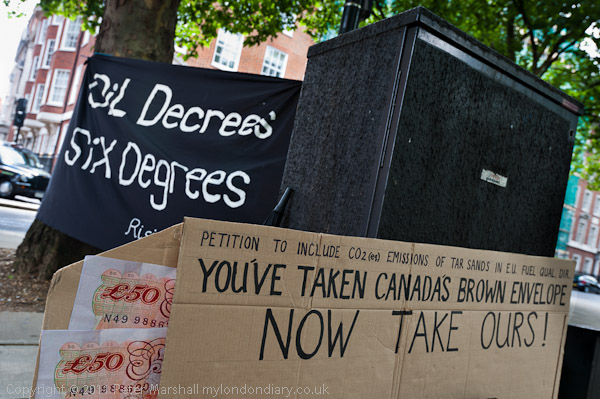 OiL Decrees
Six Degrees
Risi
PETITION TO INCLUDE CO2(es) EMISSIONS OF TAR SANDS IN E.U. FUEL QUAL. DIR.
YOU'VE TAKEN CANADA'S BROWN ENVELOPE
NOW TAKE OURS!
£50
N49 9886
£50
N49 9886
Marshall mylondondiary.co.uk